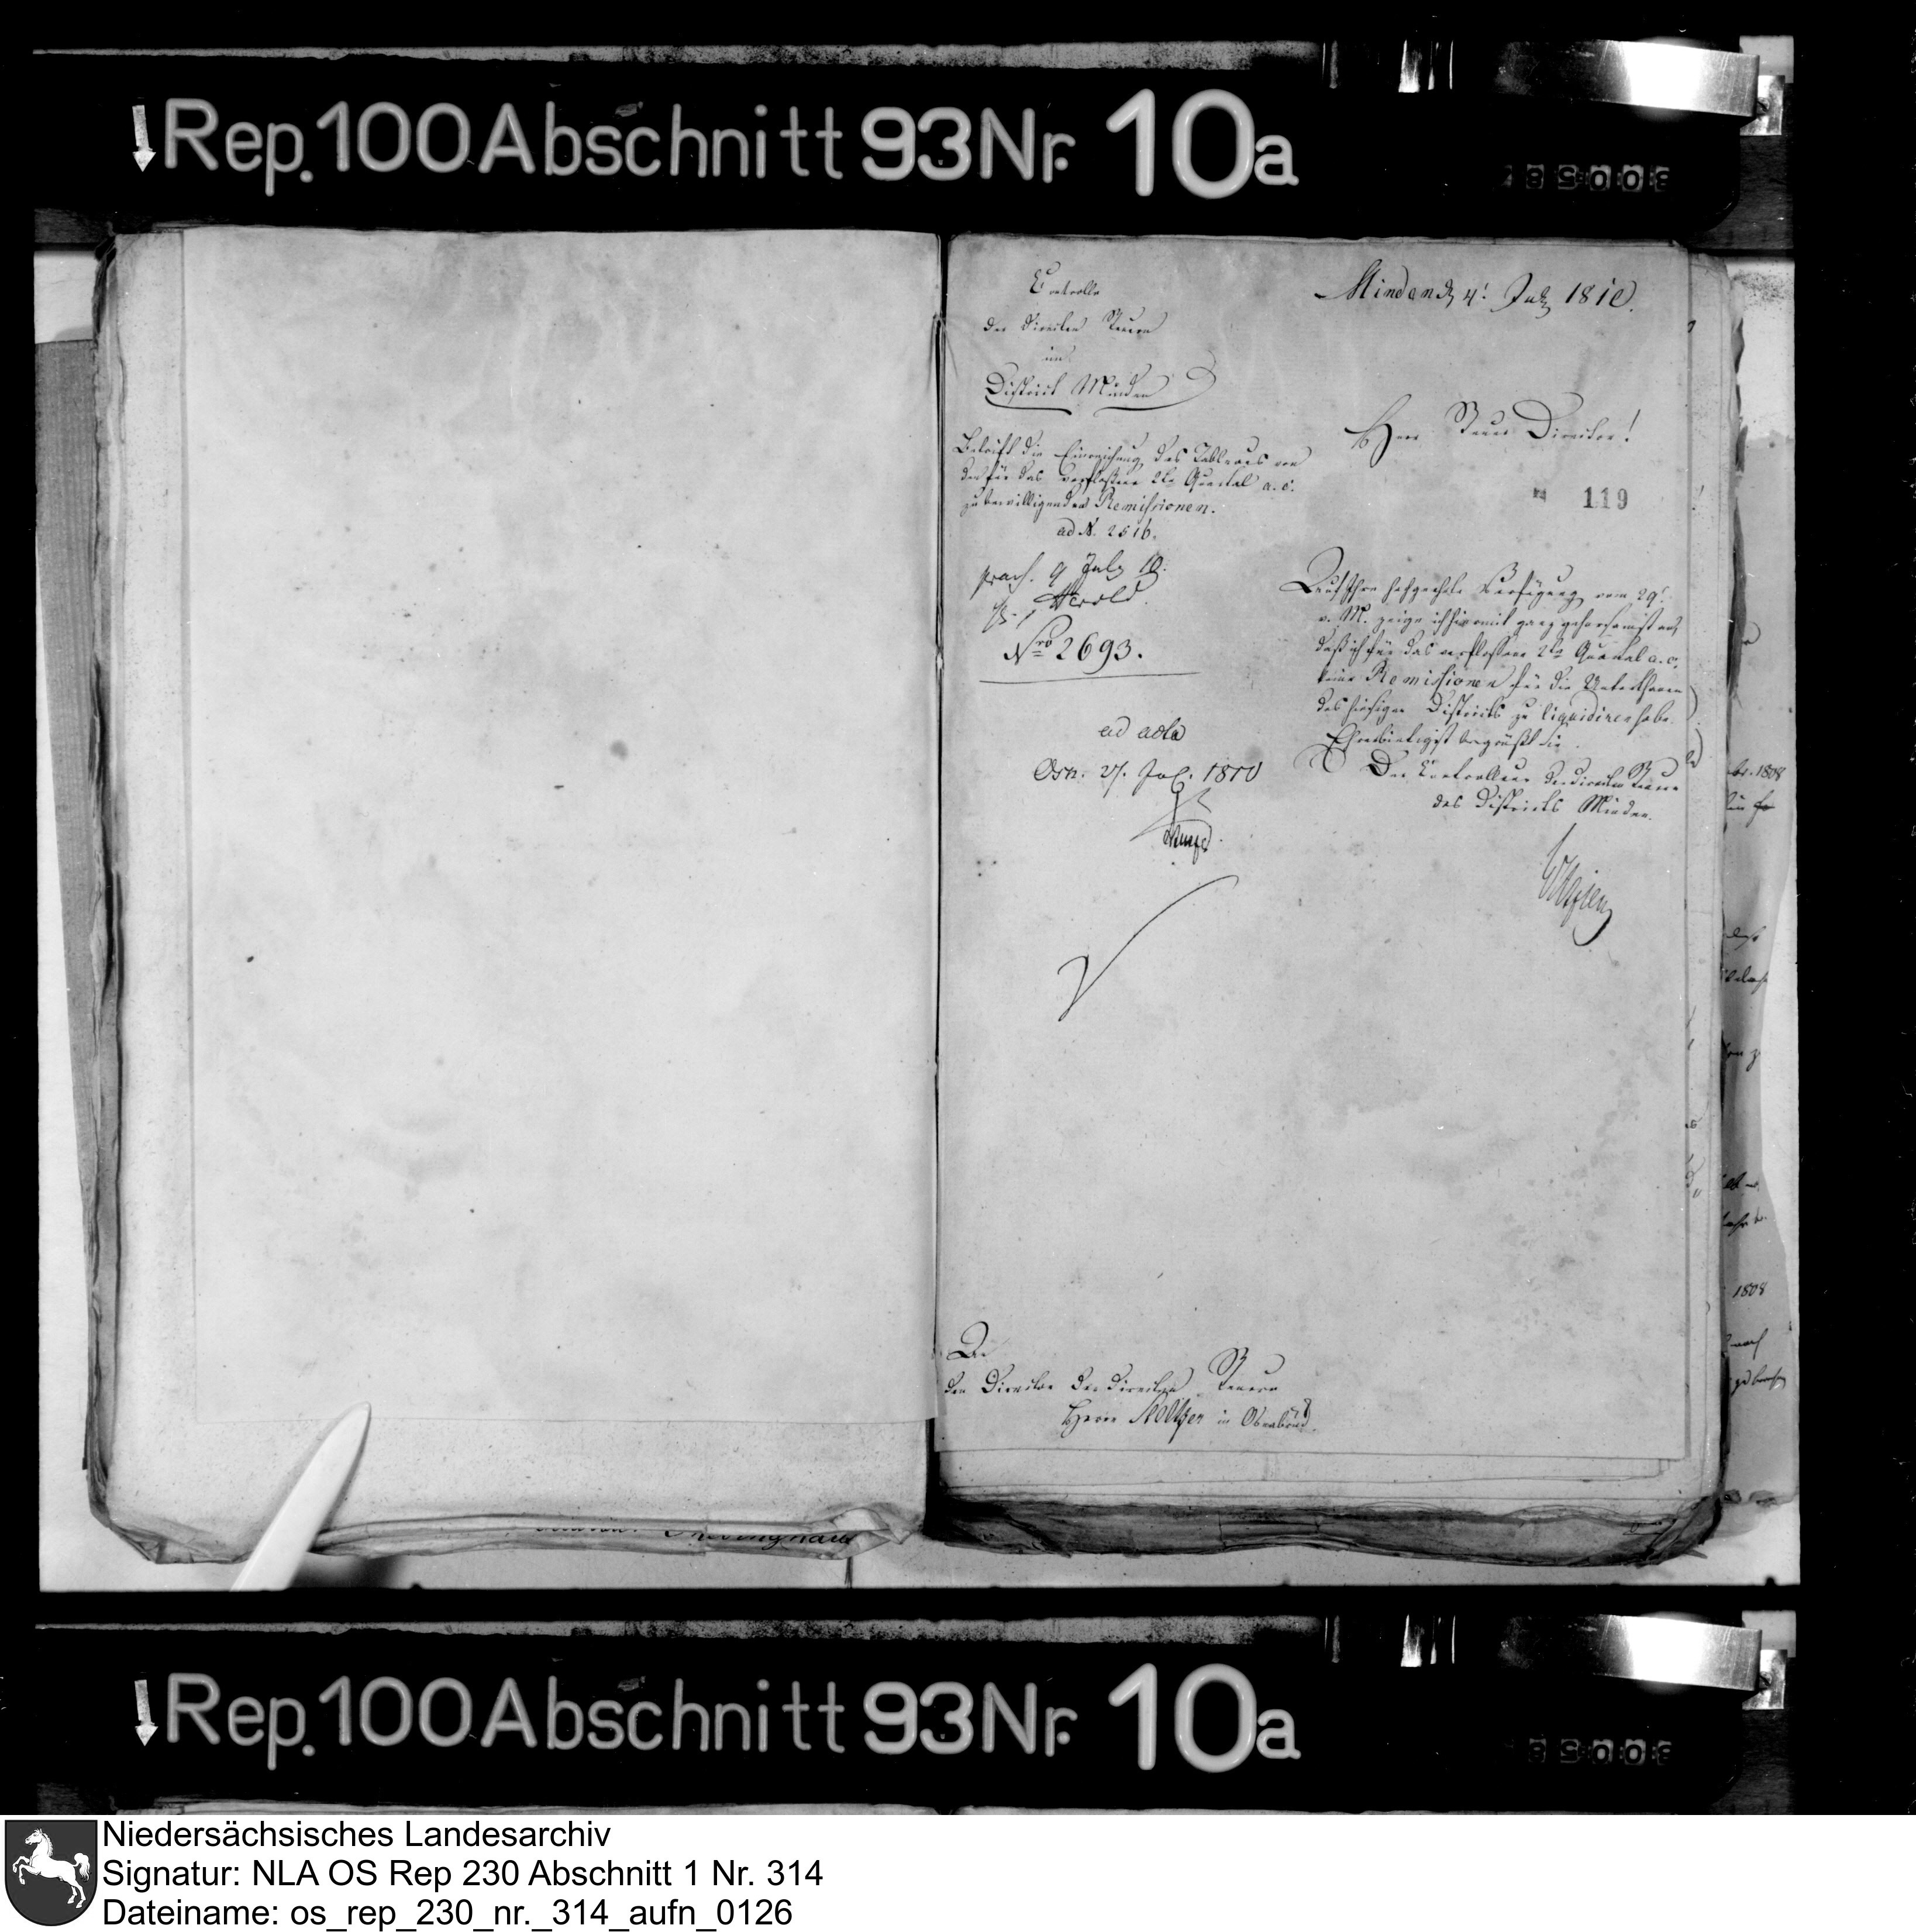 Rep. 100 Abschnitt 93 Nr. 10a
Controlle
der directen Steuern
im
District Minden
Minden d 4t July 1810.
Herr Steuer Director!
119
Betrift die Einreichung des Tableaus von
den für das verfloßene 2te Quartal a. c.
zu bewilligenden Remissionen.
ad N. 2516.
praes. 9 July 10.
Herold
Nro 2693.
ad acta
Osn. 27. Jul. 1810
Auf Ihre hochgeehrte Verfügung vom 29t
v. M. zeige ich hiermit ganz gehorsamst an,
daß ich für das verflossene 2te Quartal a. c.
keine Remissionen für die Unterthanen
des hiesigen Districts zu liquidiren habe.
Ehrerbietigst begrüßt Sie
Der Controlleur der directen Steuern
des Districts Minden.
An
den Director der directen Steuern
Herrn in Osnabrück
Rep. 100 Abschnitt 93 Nr. 10a
Niedersächsisches Landesarchiv
Signatur: NLA OS Rep 230 Abschnitt 1 Nr. 314
Dateiname: os_rep_230_nr._314_aufn_0126